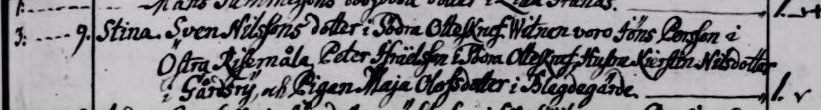 3: 9. Stina. Sven Nilssons dotter i Södra Otteskruf. Witnen voro Jöns Persson i
Östra Risemåla, Peter Israelsson i Södra Otteskruf, Hustru Kierstin Nilsdotter
i Gårdsry, och Pigan Maja Olofsdotter i Blagdegärde. 1. v